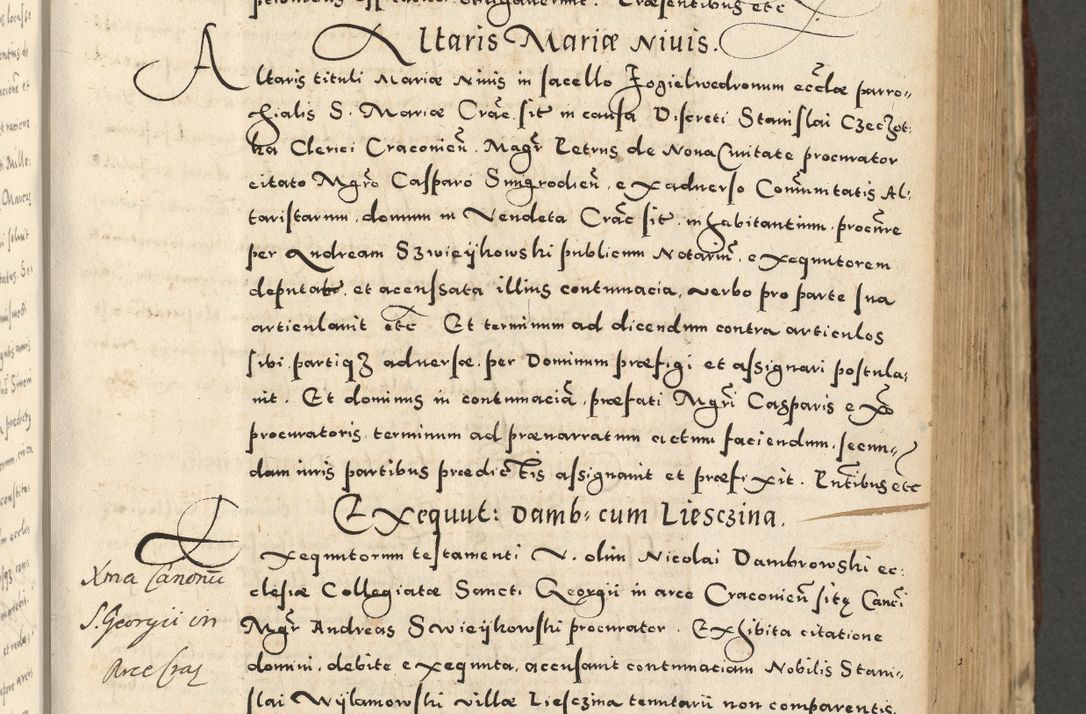 Altaris Mariæ Niuis.
Altaris tituli Mariæ Niuis in sacello Jogielwedronum eccłæ parro-
chialis S. Mariæ Crac̃. sit̃ in causa Discreti Stanislai Czeczot-
ka Clerici Cracovieñ. Magr̃ Petrus de Nona Ciuitate procurator
citato Mgr̃o Casparo Sungrodieñ, ex aduerso Com̃unitatis Al-
taristarum, domum in Vendeta Crac̃ sit̃. inhabitantium, procur̃e
per Andream Szwieÿkowski publicum Notariũ, exequutorem
deputato, et accussata illius contumacia, verbo pro parte sua
articulauit etc̃ Et terminum ad dicendum contra articulos
sibi partiqȝ aduersæ, per Dominum præfigi et assignari postula-
uit. Et dominus in contumaciã, præfati Mgr̃i Casparis ex̃o
procuratoris, terminum ad prænarratum actum faciendum, secun-
dam iuris partibus prædictis assignauit et præfixit. Pñtibus etc̃
Exequut: Damb: cum Liesczina.
Exequutorum testamenti V. olim Nicolai Dambrowski ec-
clesiæ Collegiatæ Sancti Georgii in arce Cracovieñ sitę Canc̃i
Mgr̃ Andreas Swieÿkowski procurator. Exhibita citatione
domini, debite exequuta, accusauit contumaciam Nobilis Stani-
slai Wÿlamowski villæ Liesczina tenutarii non comparentis.
Xma Canonic̃
S. Georgii in
Arce Crac̃